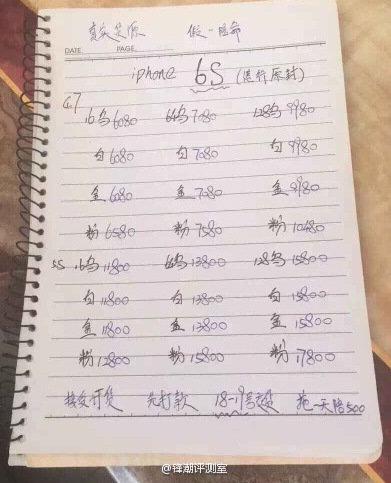 真实货源 假一赔命
DATE PAGE
iphone 6S (港行原封)
4.7 16乌6080 64乌7080 128乌9980
白6080 白7080 白9980
金6080 金7080 金9980
粉6580 粉7580 粉10480
5.5 16乌11800 64乌13800 128乌15800
白11800 白13800 白15800
金11800 金13800 金15800
粉12800 粉15800 粉17800
接受订货 先打款 18-19号发货 拖一天赔500
@锋潮评测室